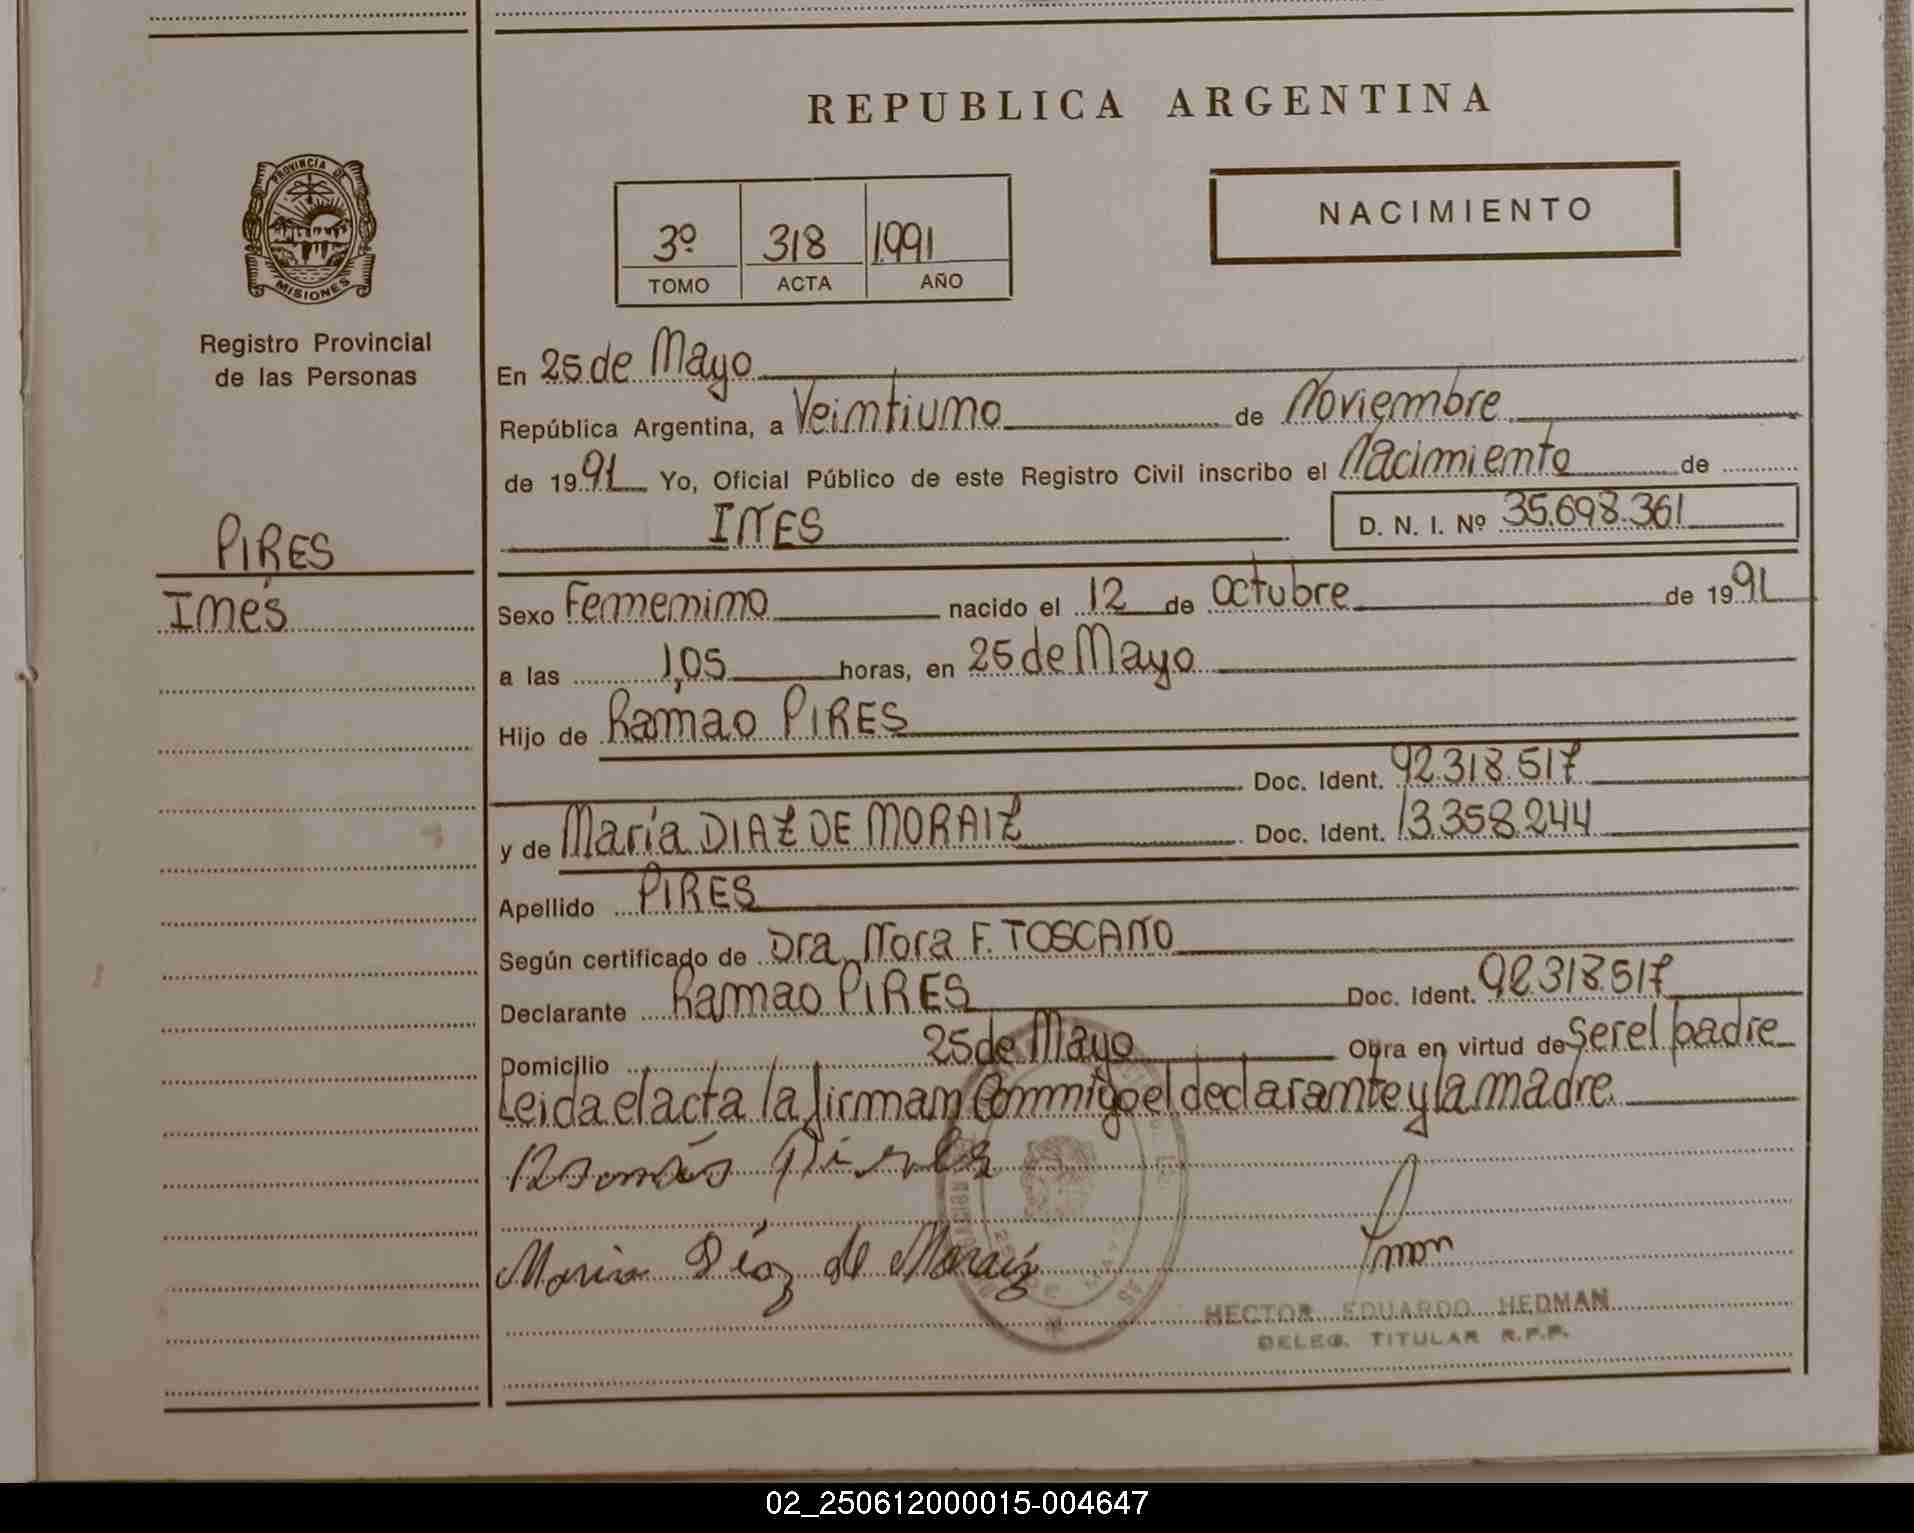 REPUBLICA ARGENTINA
PROVINCIA DE
MISIONES
Registro Provincial
de las Personas
3º 318 1991
TOMO ACTA AÑO
NACIMIENTO
PIRES
Inés
En 25 de Mayo
República Argentina, a Veintiuno de Noviembre
de 1991 Yo, Oficial Público de este Registro Civil inscribo el Nacimiento de
INES D. N. I. Nº 35.698.361
Sexo Femenino nacido el 12 de octubre de 1991
a las 1,05 horas, en 25 de Mayo
Hijo de Ramao PIRES
Doc. Ident. 92.318.517
y de María DIAZ DE MORAIZ Doc. Ident. 13.358.244
Apellido PIRES
Según certificado de Dra. Nora F. TOSCANO
Declarante Ramao PIRES Doc. Ident. 92.318.517
Domicilio 25 de Mayo Obra en virtud de ser el padre
Leida el acta la firman Conmigo el declarante y la madre.
Maria Díaz de Moraiz
HECTOR EDUARDO HEDMAN
DELEG. TITULAR R.P.P.
02_250612000015-004647